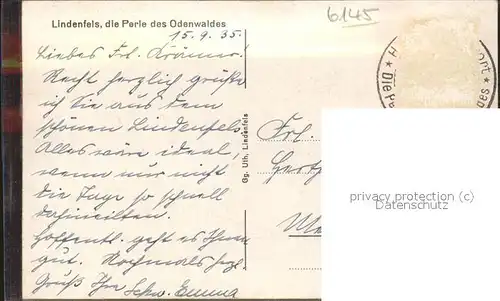 Lindenfels, die Perle des Odenwaldes
6.145
15.9.35.
Liebes Frl. Krämer!
Recht herzlich grüße
ich Sie aus dem
schönen Lindenfels.
Alles wäre ideal,
wenn nur nicht
die Tage so schnell
dahineilten.
Hoffentl. geht es Ihnen
gut. Nochmals herzl.
Gruß Ihre Schw. Emma
Gg. Uth. Lindenfels
Frl.
privacy protection (c)
Datenschutz